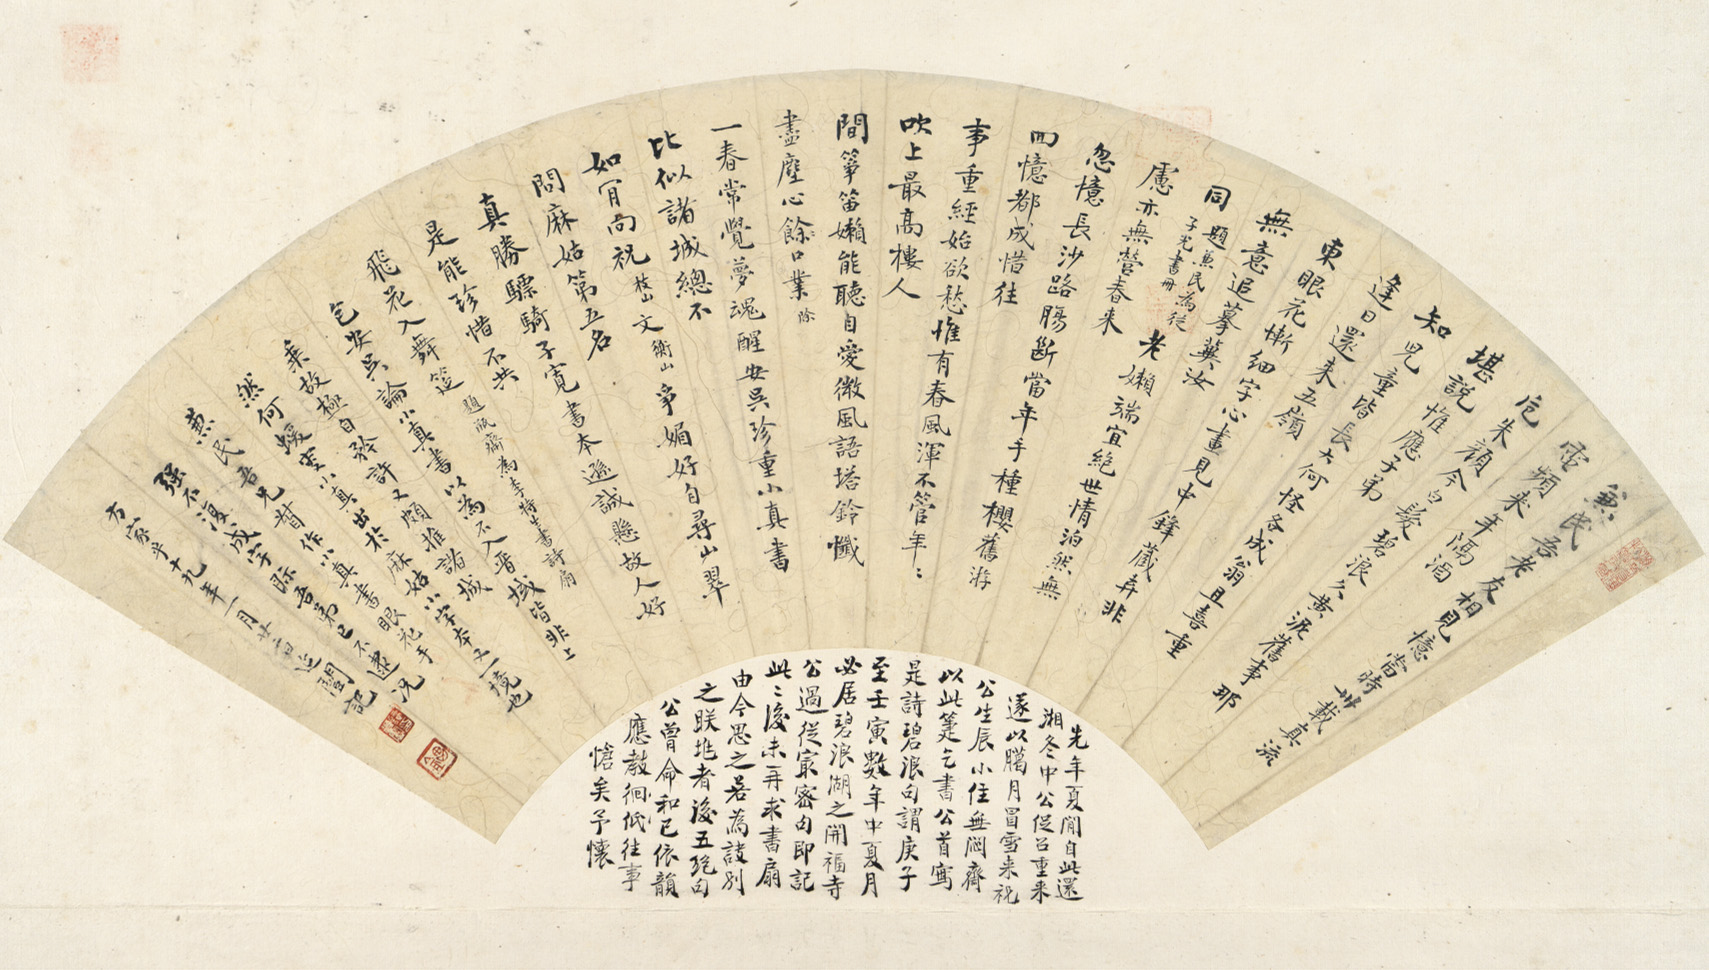 兼民吾老友相見憶當時卅載真流
電頻來年隔酒
卮朱顏今白髮碧浪久黃泥舊事那
堪說惟應子弟
知
逢日兒童皆長大何怪各成翁且喜重
還來五嶺
東眼花慚細字心畫見中鋒藏弆非
無意追摹冀汝
同
題兼民為從
子光書冊
老嬾端宜絕世情泊然無
慮亦無營春來
忽憶長沙路腸斷當年手種櫻舊游
回憶都成惜往
事重經始欲愁惟有春風渾不管年〻
吹上最高樓人
間箏笛嬾能聽自愛微風語塔鈴懺
盡塵心餘口業
除
一春常覺夢魂醒安吳珍重小真書
比似諸城總不
如肎向祝
枝山
文
衡山
爭媚好自尋山翠
問麻姑第五名
子寬書本遜誠懸故人好
真勝驃騎
是能珍惜不共
飛花入舞筵
題瓶齋為李特生書詩扇
安吳論小真書以為不入晉域皆非上
乞
乘故極自矜許又頗推諸城小字本又一境也
然何蝯叟小真出於麻姑
兼民吾兄督作小真書眼花手
強不復成字際吾弟已不逮況
方家乎十九年一月廿二日延闓記
先年夏閒自此還
湘冬中公促召重來
遂以臈月冒雪來祝
公生辰小住無悶齋
以此箑乞書公首寫
是詩碧浪句謂庚子
至壬寅數年中夏月
必居碧浪湖之開福寺
公過從宷密句即記
此〻後未再求書扇
由今思之若為詖別
之朕兆者後五絕句
公曾命和已依韻
應教徊低往事
愴矣予懷